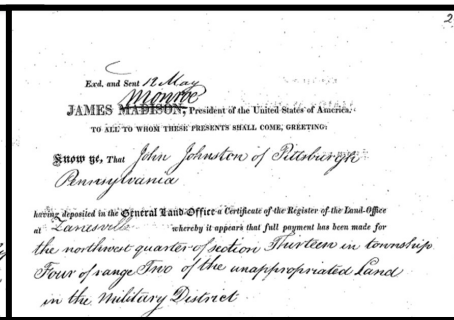 2
Exd. and Sent 12 May
Monroe
JAMES MADISON, President of the United States of America.
TO ALL TO WHOM THESE PRESENTS SHALL COME, GREETING:
Know ye, That John Johnston of Pittsburgh
Pennsylvania
having deposited in the General Land Office a Certificate of the Register of the Land-Office
at Zanesville whereby it appears that full payment has been made for
the northwest quarter of section Thirteen in township
Four of range Two of the unappropriated Land
in the Military District